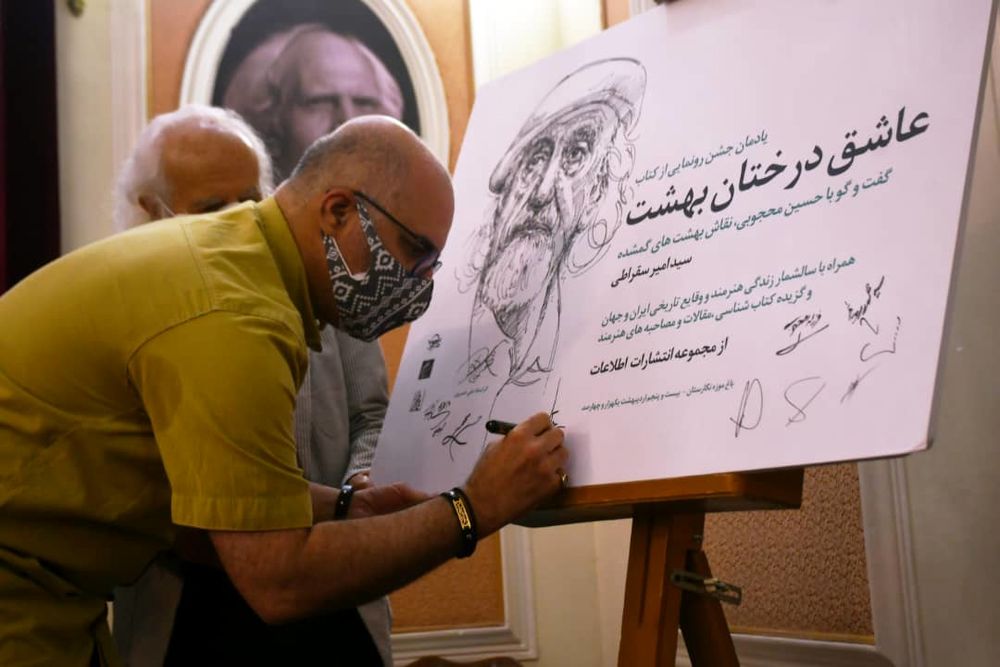 یادمان جشن رونمایی از کتاب
عاشق درختان بهشت
گفت و گو با حسین محجوبی، نقاش بهشت های گمشده
سید امیر سقراطی
همراه با سالشمار زندگی هنرمند و وقایع تاریخی ایران و جهان
و گزیده کتاب شناسی، مقالات و مصاحبه های هنرمند
از مجموعه انتشارات اطلاعات
باغ موزه نگارستان - بیست و پنجم اردیبهشت یکهزار و چهارصد